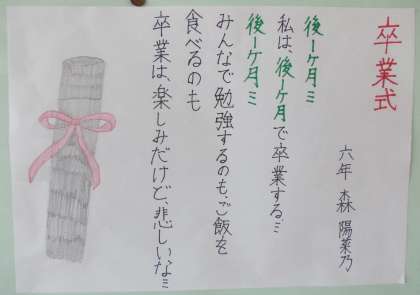 卒業式
六年 森 陽菜乃
後一ケ月ミ
私は、後一ケ月で卒業するミ
後一ケ月ミ
みんなで勉強するのも、ご飯を
食べるのも
卒業は、楽しみだけど、悲しいなミ